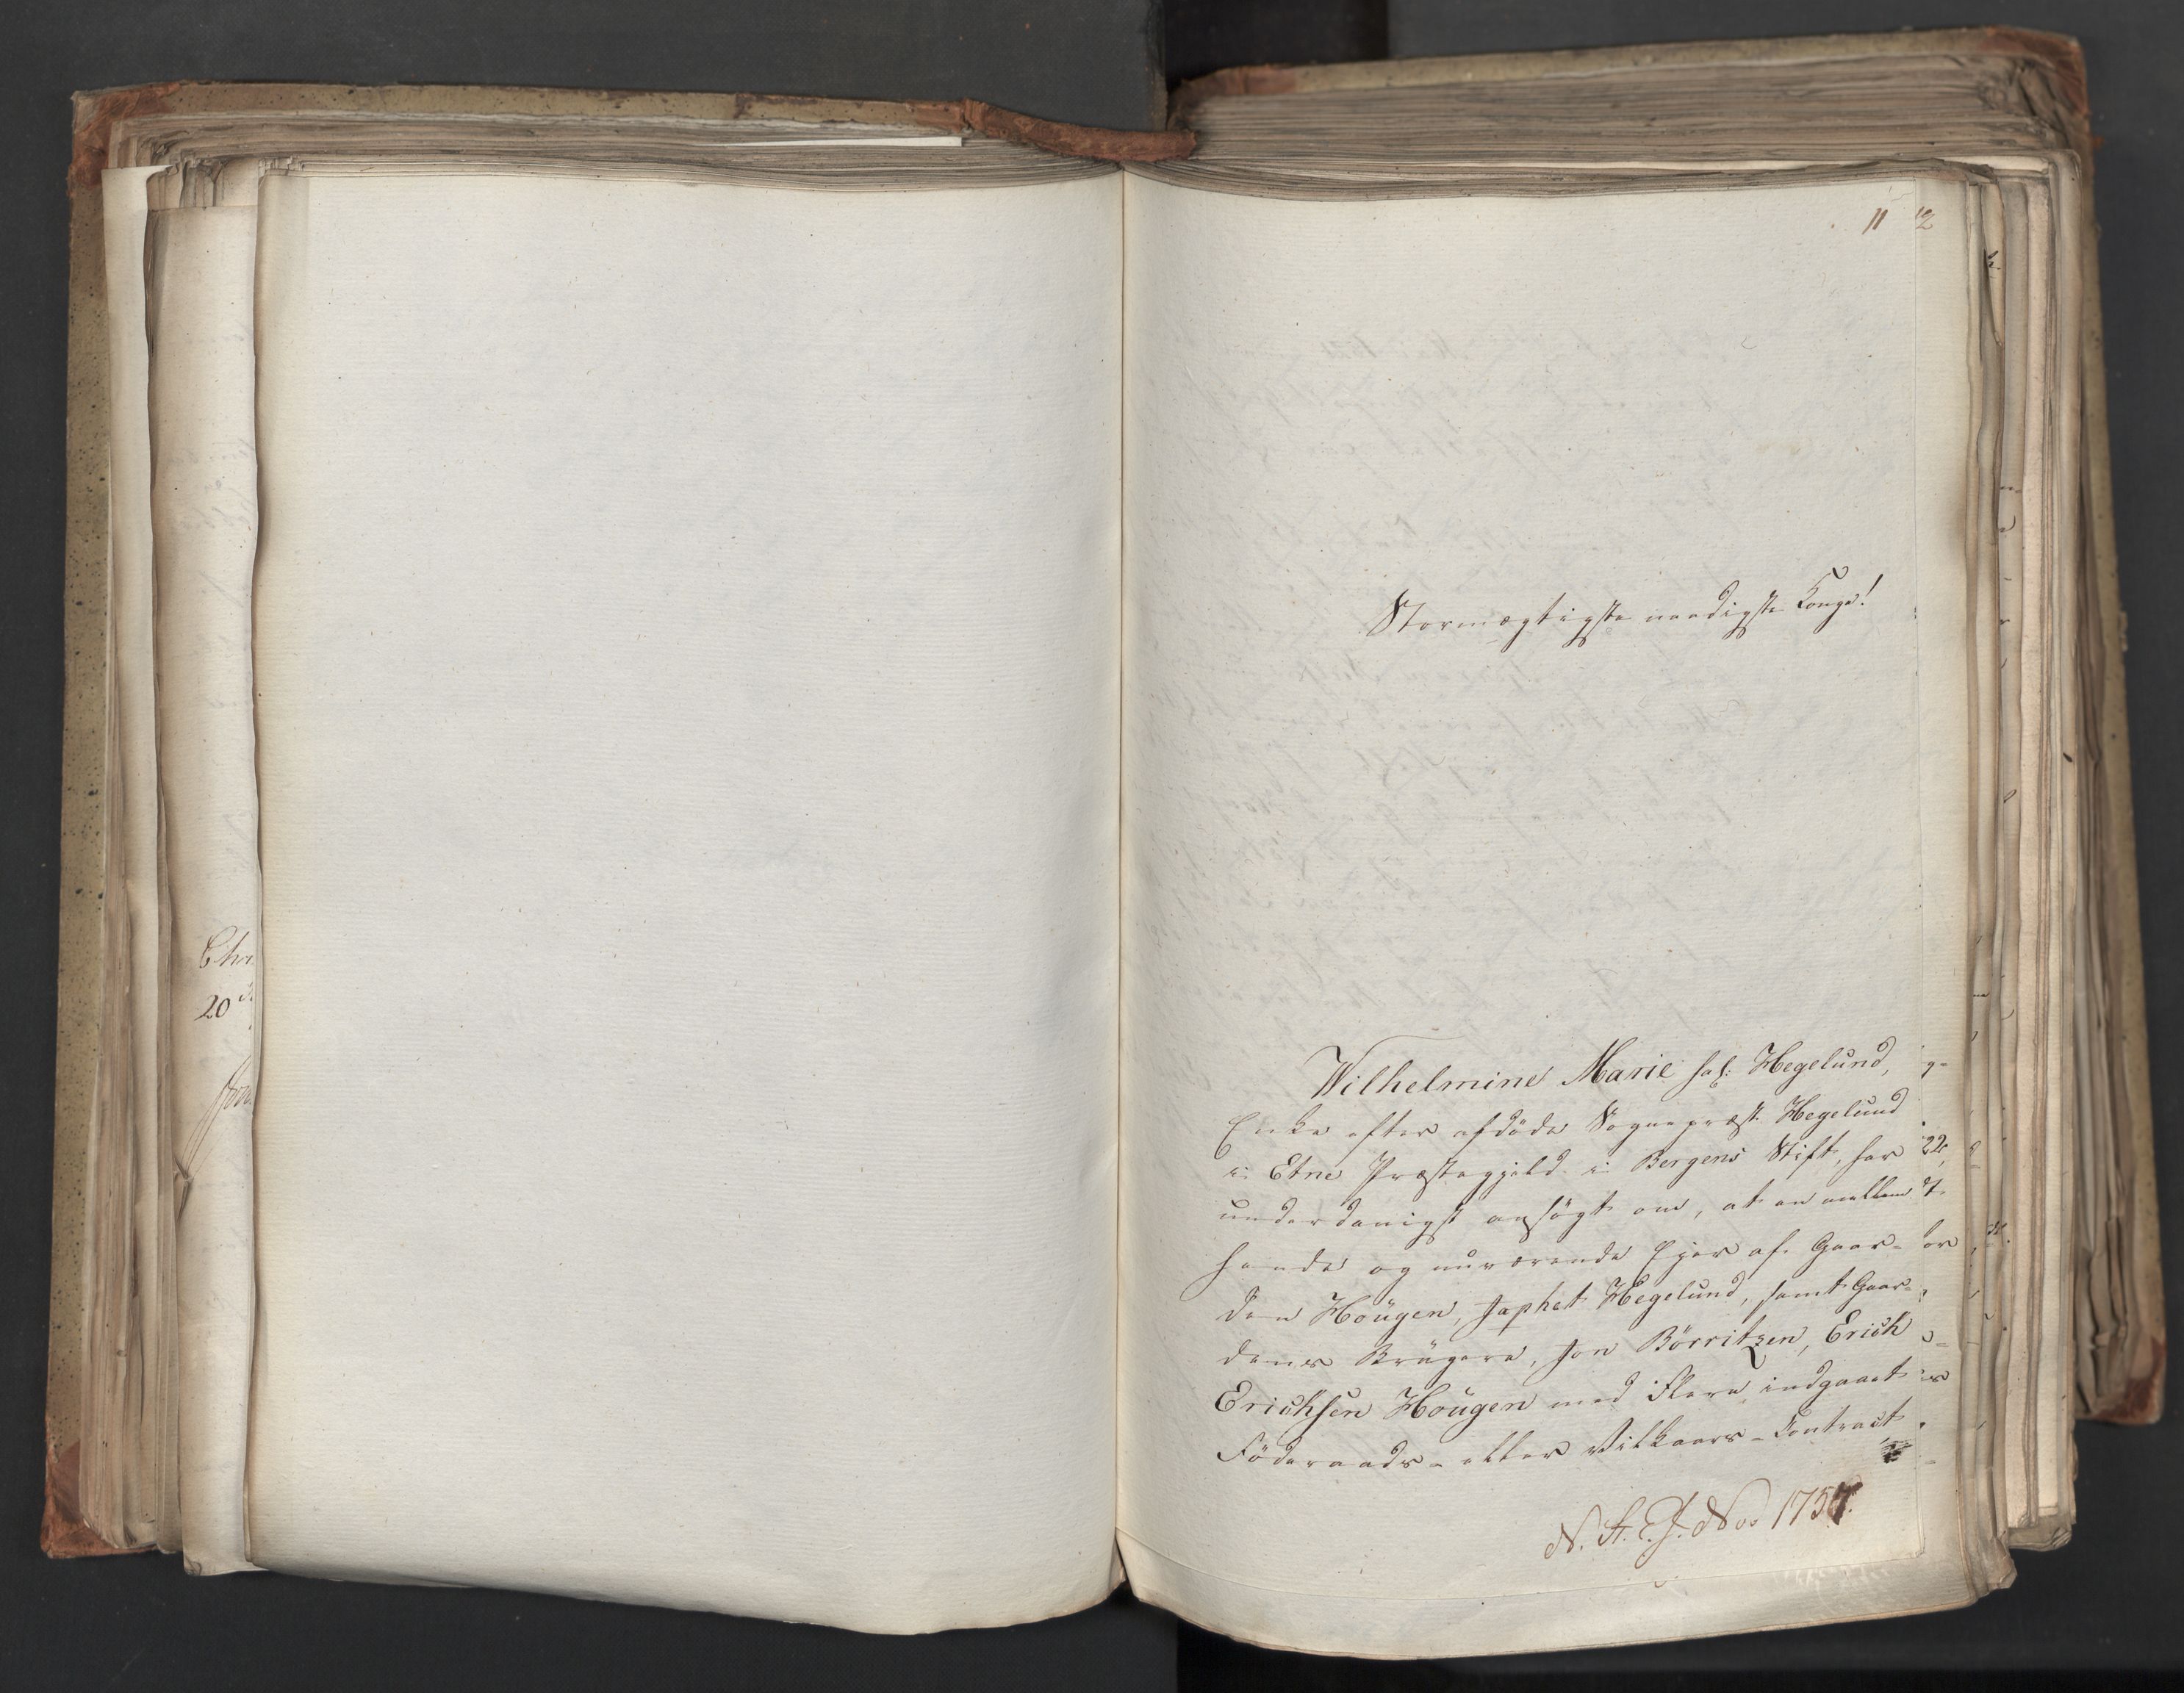 11
12
Stormægtigste naadigste Konge!
Wilhelmine Marie sal: Hegelund,
Enke efter afdöde Sognepræst Hegelund
i Etne Præstegjeld i Bergens Stift, har
underdanigst ansögt om, at en mellem
hende og nuværende Ejer af Gaar-
den Höugen, Japhet Hegelund, samt Gaar-
dens Brugere, Jon Börritzen, Erich
Erichsen Höugen med Flere indgaaet
Föderaads- eller Vilkaars-Contract
N. St. E. J. No 1757.
Chri
20